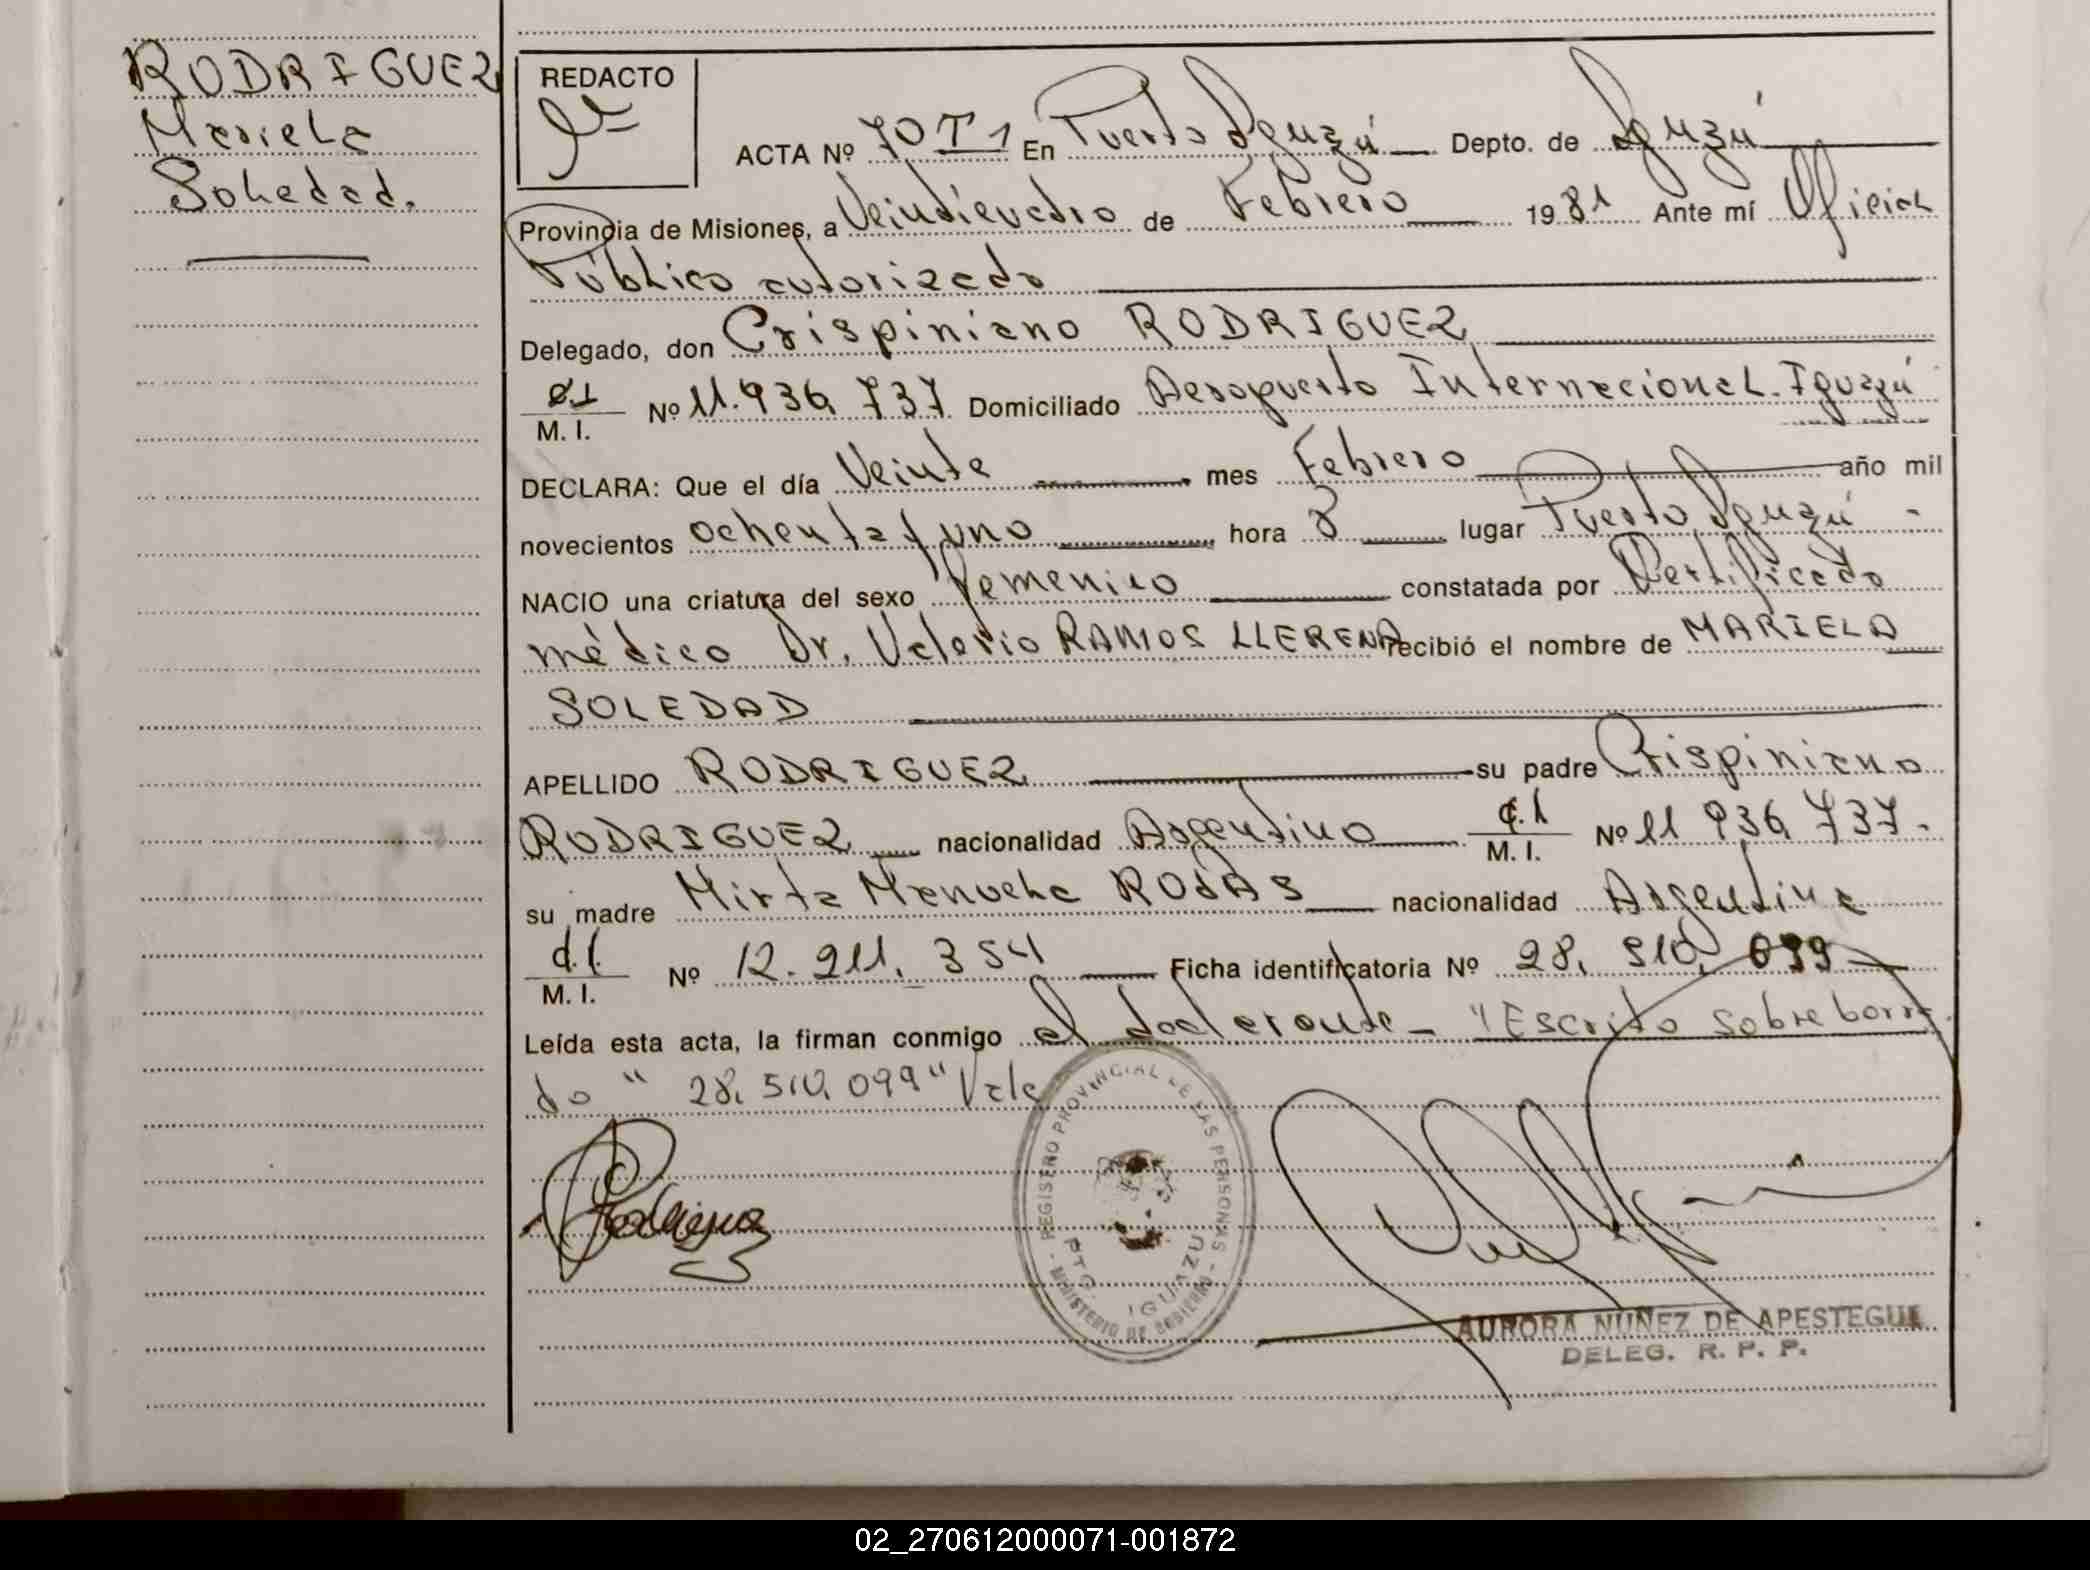 RODRIGUEZ
Mariela
Soledad.
REDACTO
ACTA Nº 70 T 1 En Puerto Iguazú Depto. de Iguazú
Provincia de Misiones, a Veinticuatro de Febrero 1981 Ante mí Oficial
Público autorizado
Delegado, don Crispiniano RODRIGUEZ
M. I. Nº 11.936.737 Domiciliado Aeropuerto Internacional. Iguazú
DECLARA: Que el día Veinte mes Febrero año mil
novecientos ochenta y uno hora 8 lugar Puerto Iguazú -
NACIO una criatura del sexo femenino constatada por Certificado
médico Dr. Valerio RAMOS LLERENA recibió el nombre de MARIELA
SOLEDAD
APELLIDO RODRIGUEZ su padre Crispiniano
RODRIGUEZ nacionalidad Argentino C.I. M. I. Nº 11.936.737.
su madre Mirta Manuela ROJAS nacionalidad Argentina
C.I. M. I. Nº 12.211.354 Ficha identificatoria Nº 28.510.099
Leída esta acta, la firman conmigo el declarante - "Escrito sobre borra
do " 28.510.099" Vale
REGISTRO PROVINCIAL DE LAS PERSONAS
PTO. IGUAZU
- MINISTERIO DE GOBIERNO -
AURORA NUÑEZ DE APESTEGUI
DELEG. R. P. P.
02_270612000071-001872